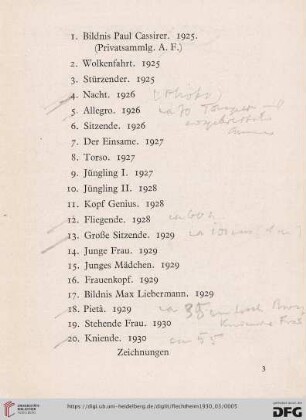 1. Bildnis Paul Cassirer. 1925.
(Privatsammlg. A. F.)
2. Wolkenfahrt. 1925
3. Stürzender. 1925
4. Nacht. 1926
5. Allegro. 1926
6. Sitzende. 1926
7. Der Einsame. 1927
8. Torso. 1927
9. Jüngling I. 1927
10. Jüngling II. 1928
11. Kopf Genius. 1928
12. Fliegende. 1928
13. Große Sitzende. 1929
14. Junge Frau. 1929
15. Junges Mädchen. 1929
16. Frauenkopf. 1929
17. Bildnis Max Liebermann. 1929
18. Pietà. 1929 ca 35 cm
19. Stehende Frau. 1930
20. Kniende. 1930 cm 55
Zeichnungen
3
https://digi.ub.uni-heidelberg.de/diglit/flechtheim1930_03/0005
DFG